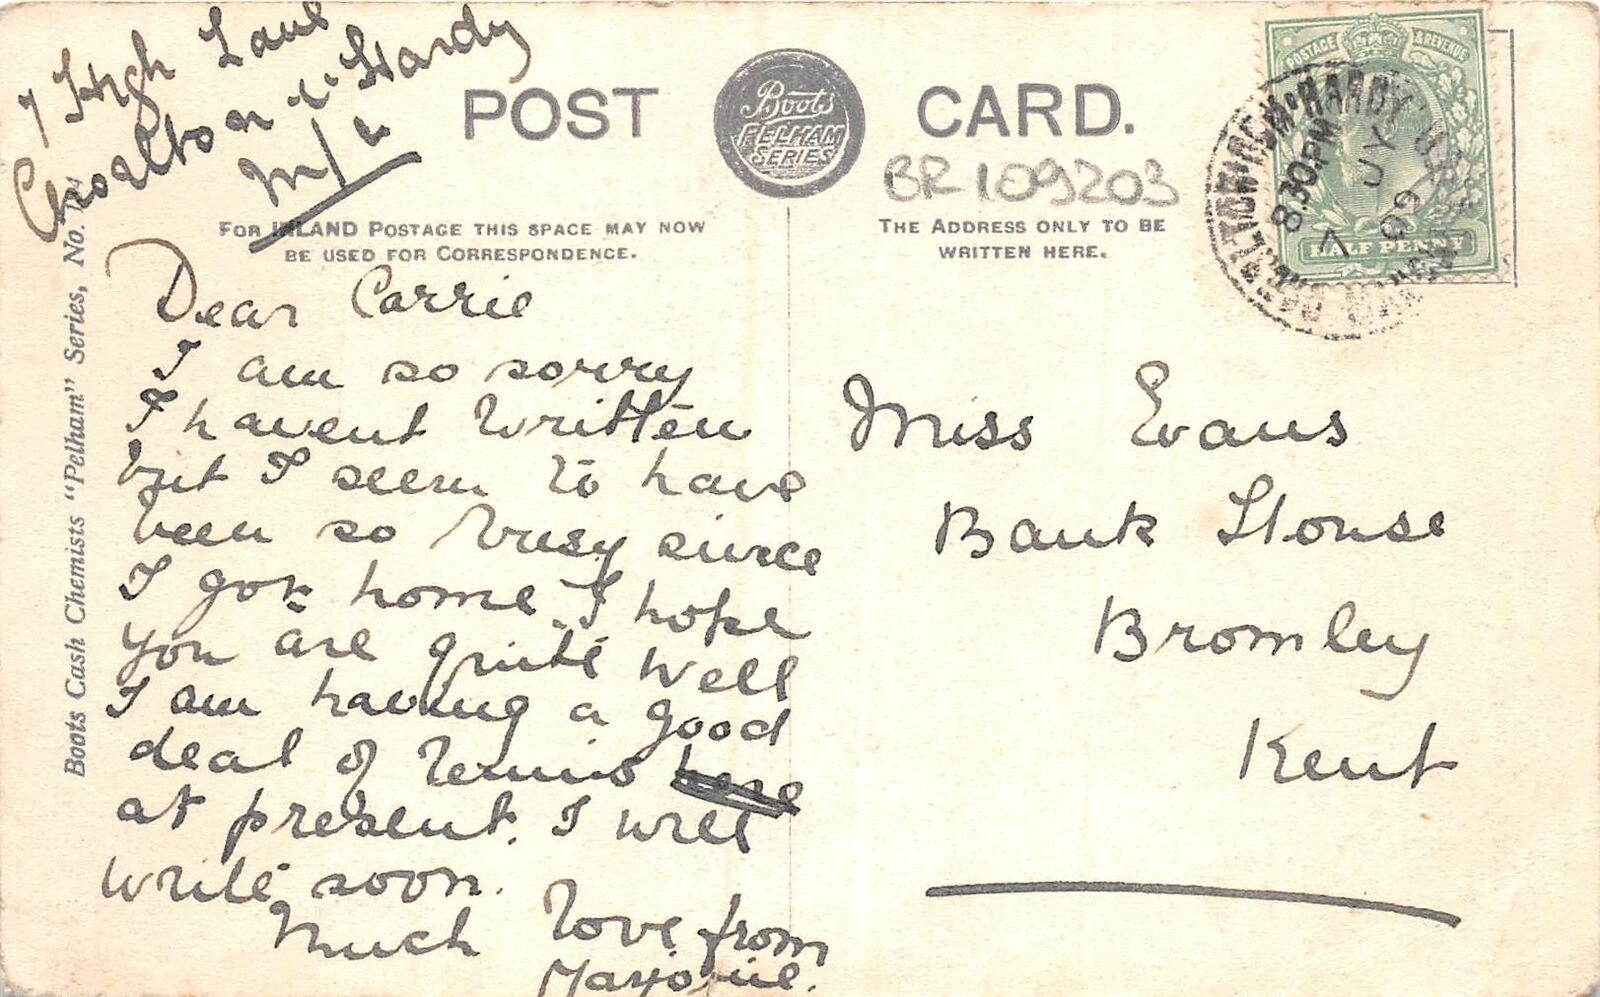 7 High Lane
Chorlton "c" Hardy
M/c
POST CARD.
Boots
PELHAM
SERIES
BR 109203
POSTAGE & REVENUE
HALF PENNY
8.30 PM
JY
09
FOR INLAND POSTAGE THIS SPACE MAY NOW
BE USED FOR CORRESPONDENCE.
THE ADDRESS ONLY TO BE
WRITTEN HERE.
Boots Cash Chemists "Pelham" Series, No.
Dear Carrie
I am so sorry
I havent written
but I seem to have
been so busy since
I got home. I hope
you are quite well
I am having a good
deal of Tennis here
at present. I will
write soon.
Much love from
Marjorie.
Miss Evans
Bank House
Bromley
Kent